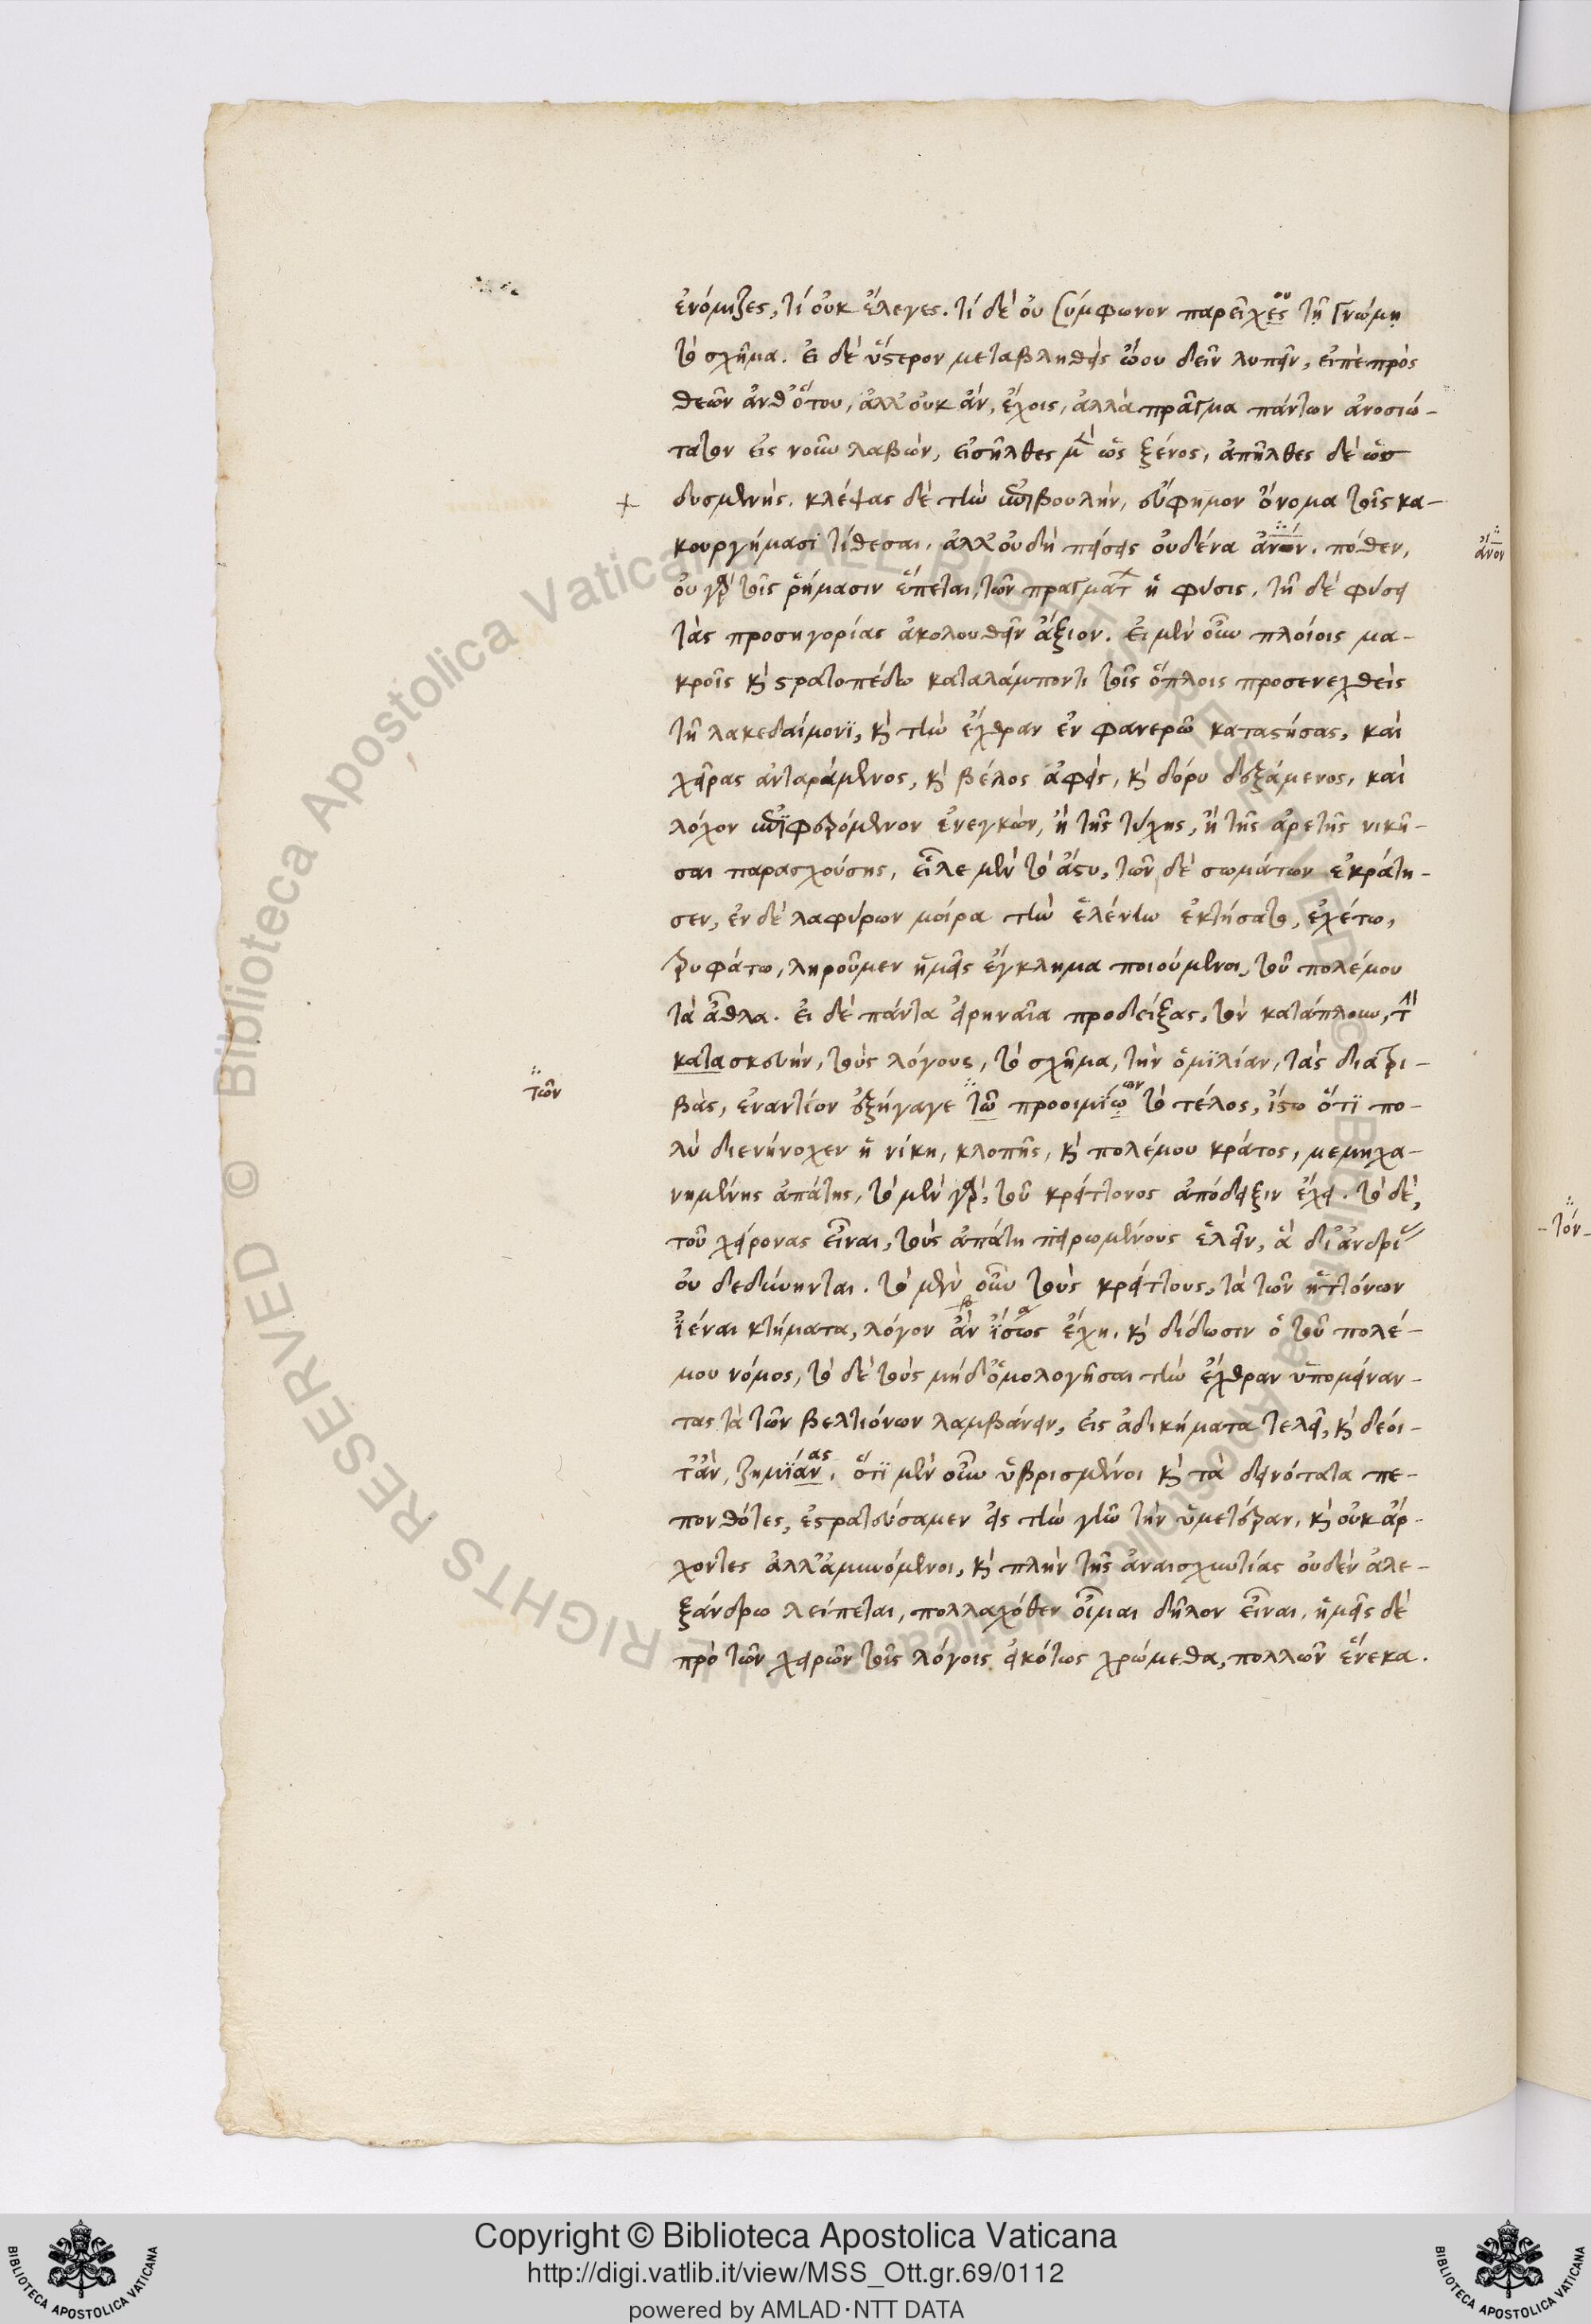 ἐνόμιζες, τί οὐκ ἔλεγες. τί δὲ οὐ σύμφωνον παρεῖχες ου τῇ γνώμῃ
τὸ σχῆμα. εἰ δὲ ὕστερον μεταβληθεὶς ᾤου δεῖν λυπεῖν, εἰπὲ πρὸς
θεῶν ἀνθ' ὅτου, ἀλλ' οὐκ ἂν, ἔχοις, ἀλλὰ πρᾶγμα πάντων ἀνοσιώ-
τατον εἰς νοῦν λαβὼν, εἰσῆλθες μὲν ὡς ξένος, ἀπῆλθες δὲ ὡς
δυσμενής. κλέψας δὲ τὴν ἐπιβουλὴν, εὔφημον ὄνομα τοῖς κα-
κουργήμασι τίθεσαι. ἀλλ' οὐδὴ πείσεις οὐδένα ἀνων. πόθεν,
οὐ γὰρ τοῖς ῥήμασιν ἕπεται, τῶν πραγμάτων ἡ φύσις. τῇ δὲ φύσει
τὰς προσηγορίας ἀκολουθεῖν ἄξιον. εἰ μὲν οὖν πλοίοις μα-
κροῖς καὶ στρατοπέδω καταλάμποντι τοῖς ὅπλοις προσενεχθεὶς
τῇ λακεδαίμονϊ, καὶ τὴν ἔχθραν ἐν φανερῶ καταστήσας, καὶ
χεῖρας ἀνταράμενος, καὶ βέλος ἀφεὶς, καὶ δόρυ δεξάμενος, καὶ
λόχον ἐπϊφερόμενον ἐνεγκὼν, ἢ τῆς τύχης, ἢ τῆς ἀρετῆς νικῆ-
σαι παρασχούσης, εἷλε μὲν τὸ ἄστυ, τῶν δὲ σωμάτων ἐκράτη-
σεν, ἐν δὲ λαφύρων μοίρα τὴν ἑλένην ἐκτήσατο, ἐχέτω,
τρυφάτω, ληροῦμεν ἡμεῖς ἔγκλημα ποιούμενοι, τοῦ πολέμου
τὰ ἆθλα. εἰ δὲ πάντα εἰρηναῖα προδείξας, τὸν κατάπλουν, τὴν
κατασκευὴν, τοὺς λόγους, τὸ σχῆμα, τὴν ὁμϊλίαν, τὰς διατρι-
βὰς, ἐναντίον ἐξήγαγε τῶ προοιμίω ων τὸ τέλος, ἴστω ὅτϊ πο-
λὺ διενήνοχεν ἡ νίκη, κλοπῆς, καὶ πολέμου κράτος, μεμηχα-
νημένης ἀπάτης, τὸ μὲν γὰρ, τοῦ κρείττονος ἀπόδειξιν ἔχει. τὸ δὲ,
τοῦ χείρονας εἶναι, τοὺς ἀπάτη πειρωμένους ἑλεῖν, ἃ δι' ἀνδρείας
οὐ δεδύνηνται. τὸ μὲν οὖν τοὺς κρείττους, τὰ τῶν ἡττόνων
ἰέναι κτήματα, λόγον ἂν ἴσως ἔχη. καὶ δίδωσιν ὁ τοῦ πολέ-
μου νόμος, τὸ δὲ τοὺς μήδ' ὁμολογῆσαι τὴν ἔχθραν ὑπομείναν-
τας τὰ τῶν βελτιόνων λαμβάνειν, εἰς ἀδικήματα τελεῖ, καὶ δέοι-
τ' ἂν, ζημϊάν ας. ὅτϊ μὲν οὖν ὑβρισμένοι καὶ τὰ δεινότατα πε-
πονθότες, ἐστρατεύσαμεν εἰς τὴν γῆν τὴν ὑμετέραν. καὶ οὐκ ἄρ-
χοντες ἀλλ' ἀμυνόμενοι, καὶ πλὴν τῆς ἀναισχυντίας οὐδὲν ἀλε-
ξάνδρω λείπεται, πολλαχόθεν οἶμαι δῆλον εἶναι, ἡμεῖς δὲ
πρὸ τῶν χειρῶν τοῖς λόγοις εἰκότως χρώμεθα, πολλῶν ἕνεκα.
ἄνον
τῶν
τὸν
Copyright © Biblioteca Apostolica Vaticana
http://digi.vatlib.it/view/MSS_Ott.gr.69/0112
powered by AMLAD·NTT DATA
BIBLIOTECA APOSTOLICA VATICANA
BIBLIOTECA APOSTOLICA VATICANA
© Biblioteca Apostolica Vaticana ALL RIGHTS RESERVED © Biblioteca Apostolica Vaticana ALL RIGHTS RESERVED